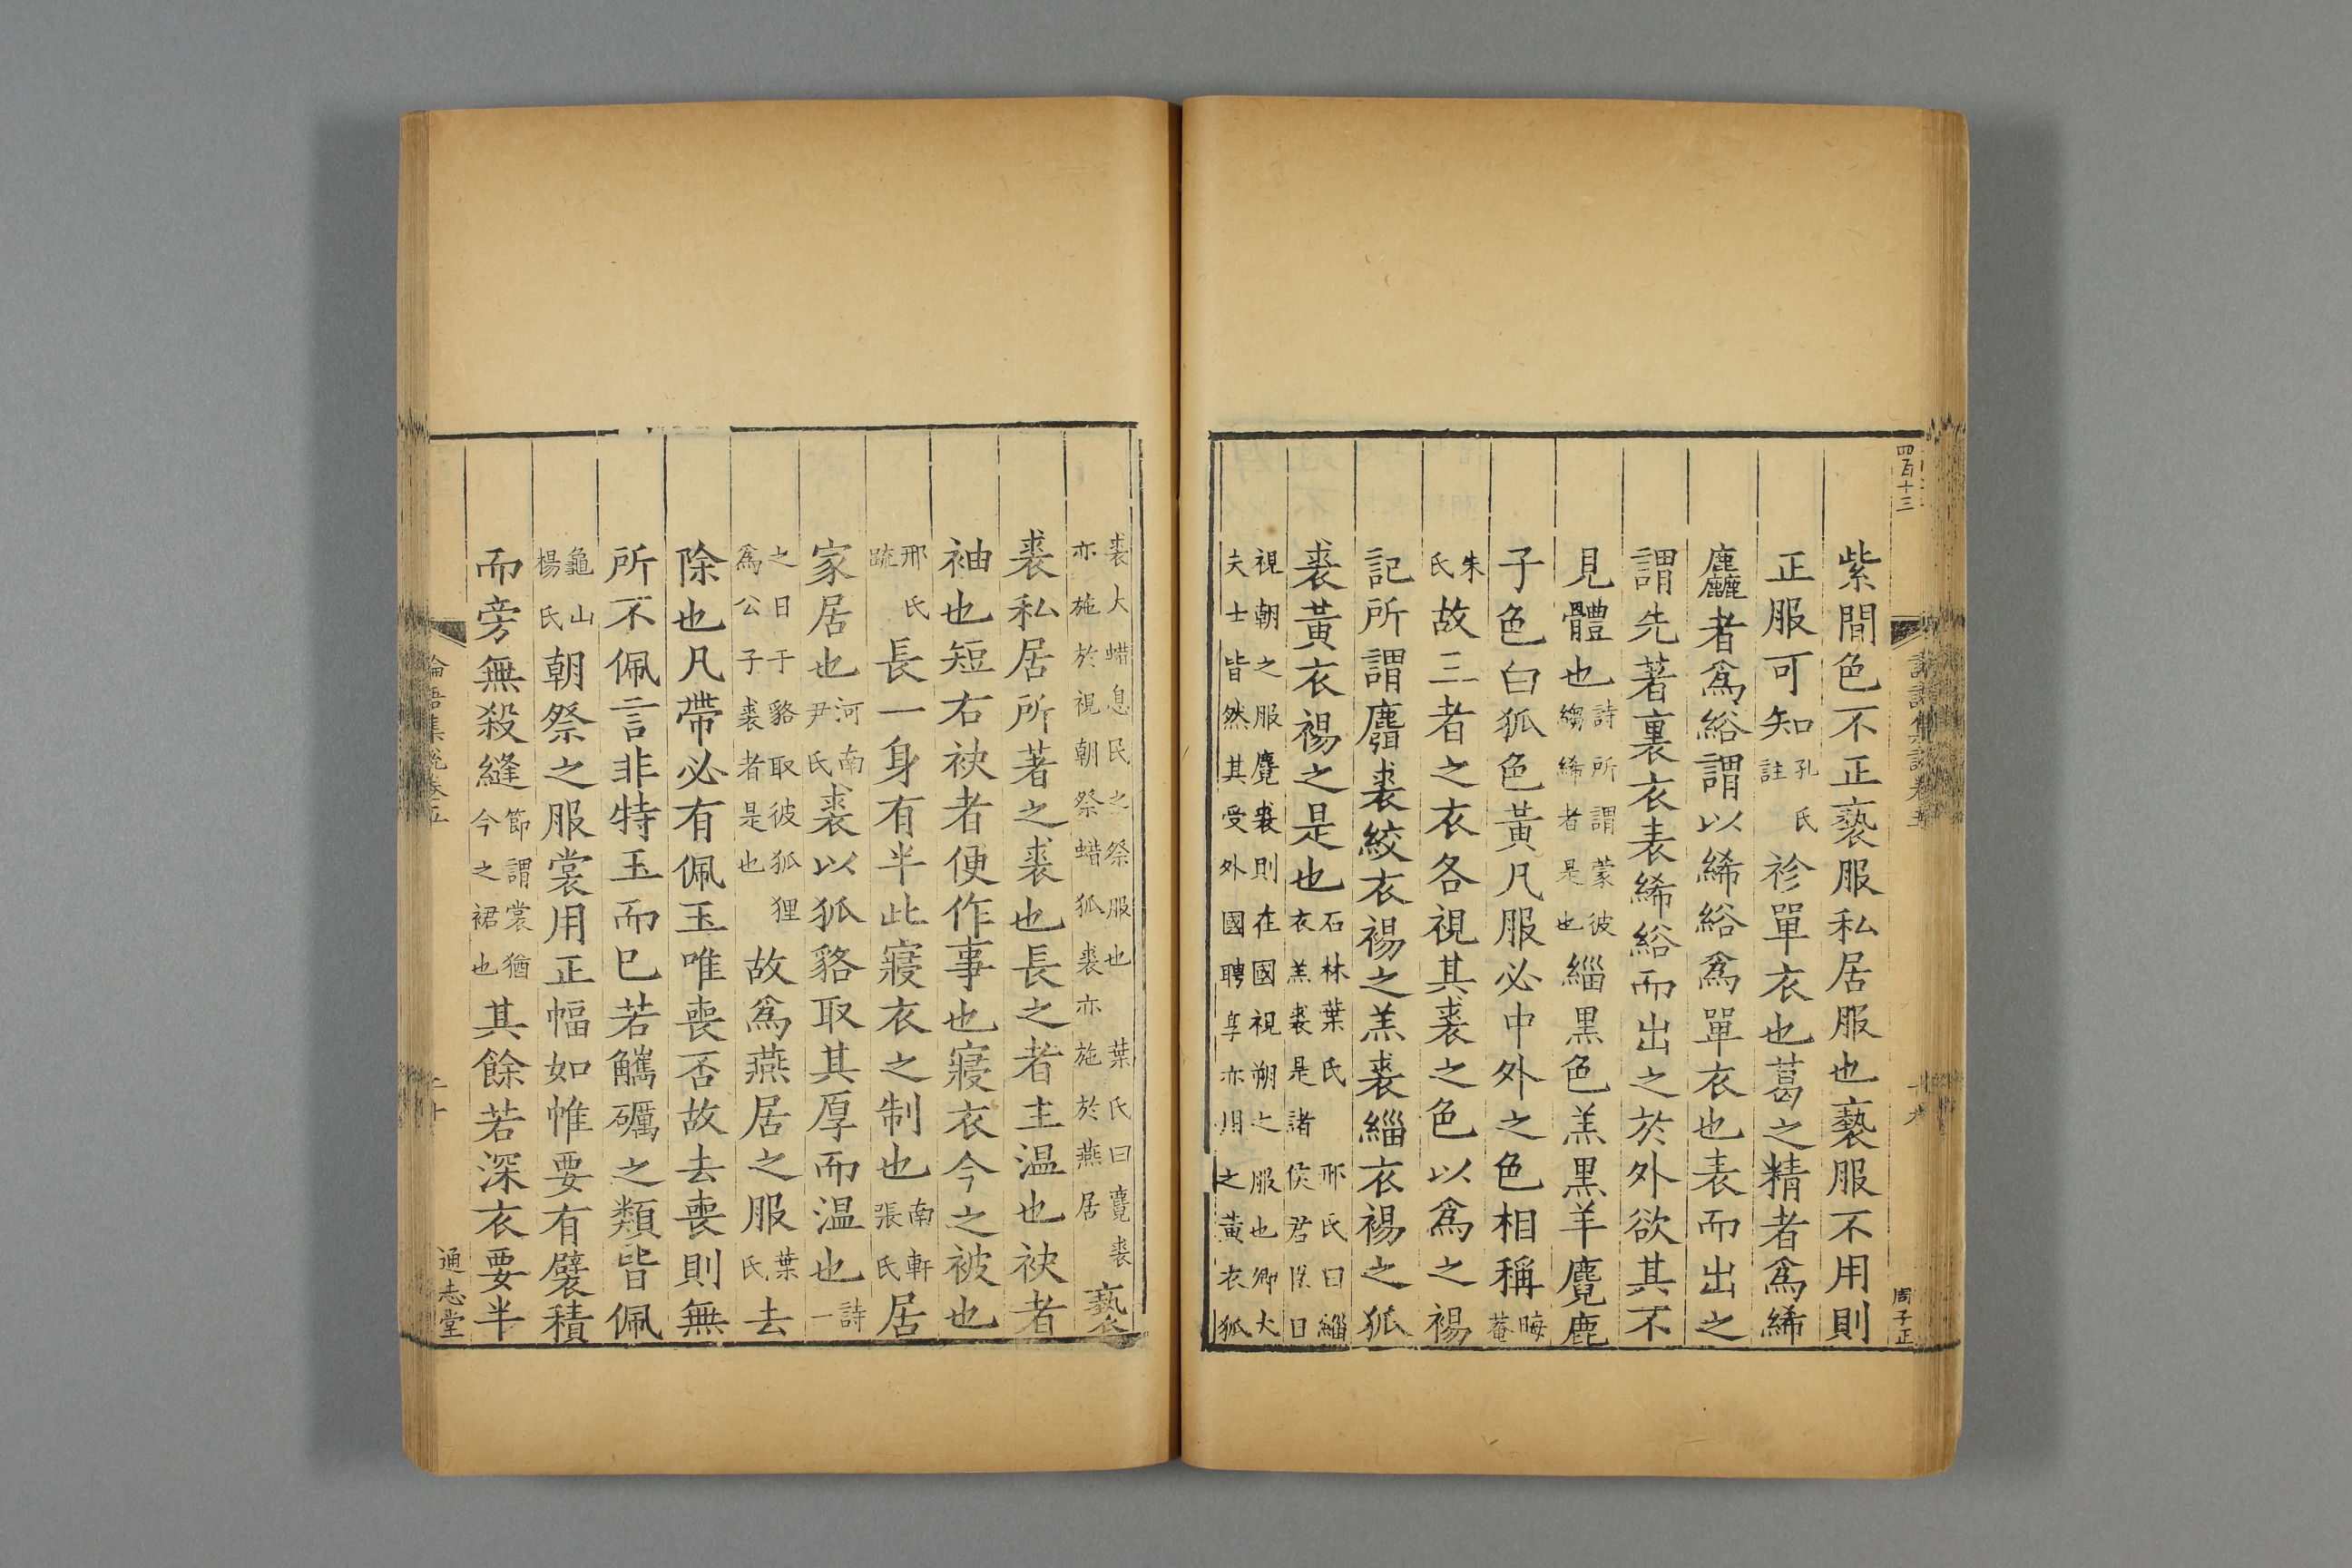 四百十三
周子正
紫間色不正䙝服私居服也䙝服不用則
正服可知孔氏註袗單衣也葛之精者爲絺
麤者爲綌謂以絺綌爲單衣也表而出之
謂先著裏衣表絺綌而出之於外欲其不
見體也詩所謂蒙彼縐絺者是也緇黑色羔黑羊麑鹿
子色白狐色黃凡服必中外之色相稱晦菴
朱氏故三者之衣各視其裘之色以爲之裼
記所謂麛裘絞衣裼之羔裘緇衣裼之狐
裘黃衣裼之是也石林葉氏 邢氏曰緇衣羔裘是諸侯君臣日
視朝之服麑裘則在國視朔之服也卿大夫士皆然其受外國聘享亦用之黃衣狐
裘大蜡息民之祭服也 葉氏曰麑裘亦施於視朝祭蜡狐裘亦施於燕居䙝
裘私居所著之裘也長之者主温也袂者
袖也短右袂者便作事也寢衣今之被也
邢氏疏長一身有半此寢衣之制也南軒張氏居
家居也河南尹氏裘以狐貉取其厚而温也詩一
之日于貉取彼狐狸爲公子裘者是也故爲燕居之服葉氏去
除也凡帶必有佩玉唯喪否故去喪則無
所不佩言非特玉而已若觿礪之類皆佩
龜山楊氏朝祭之服裳用正幅如帷要有襞積
而旁無殺縫節謂裳猶今之裙也其餘若深衣要半
論語集說卷五
二十
通志堂